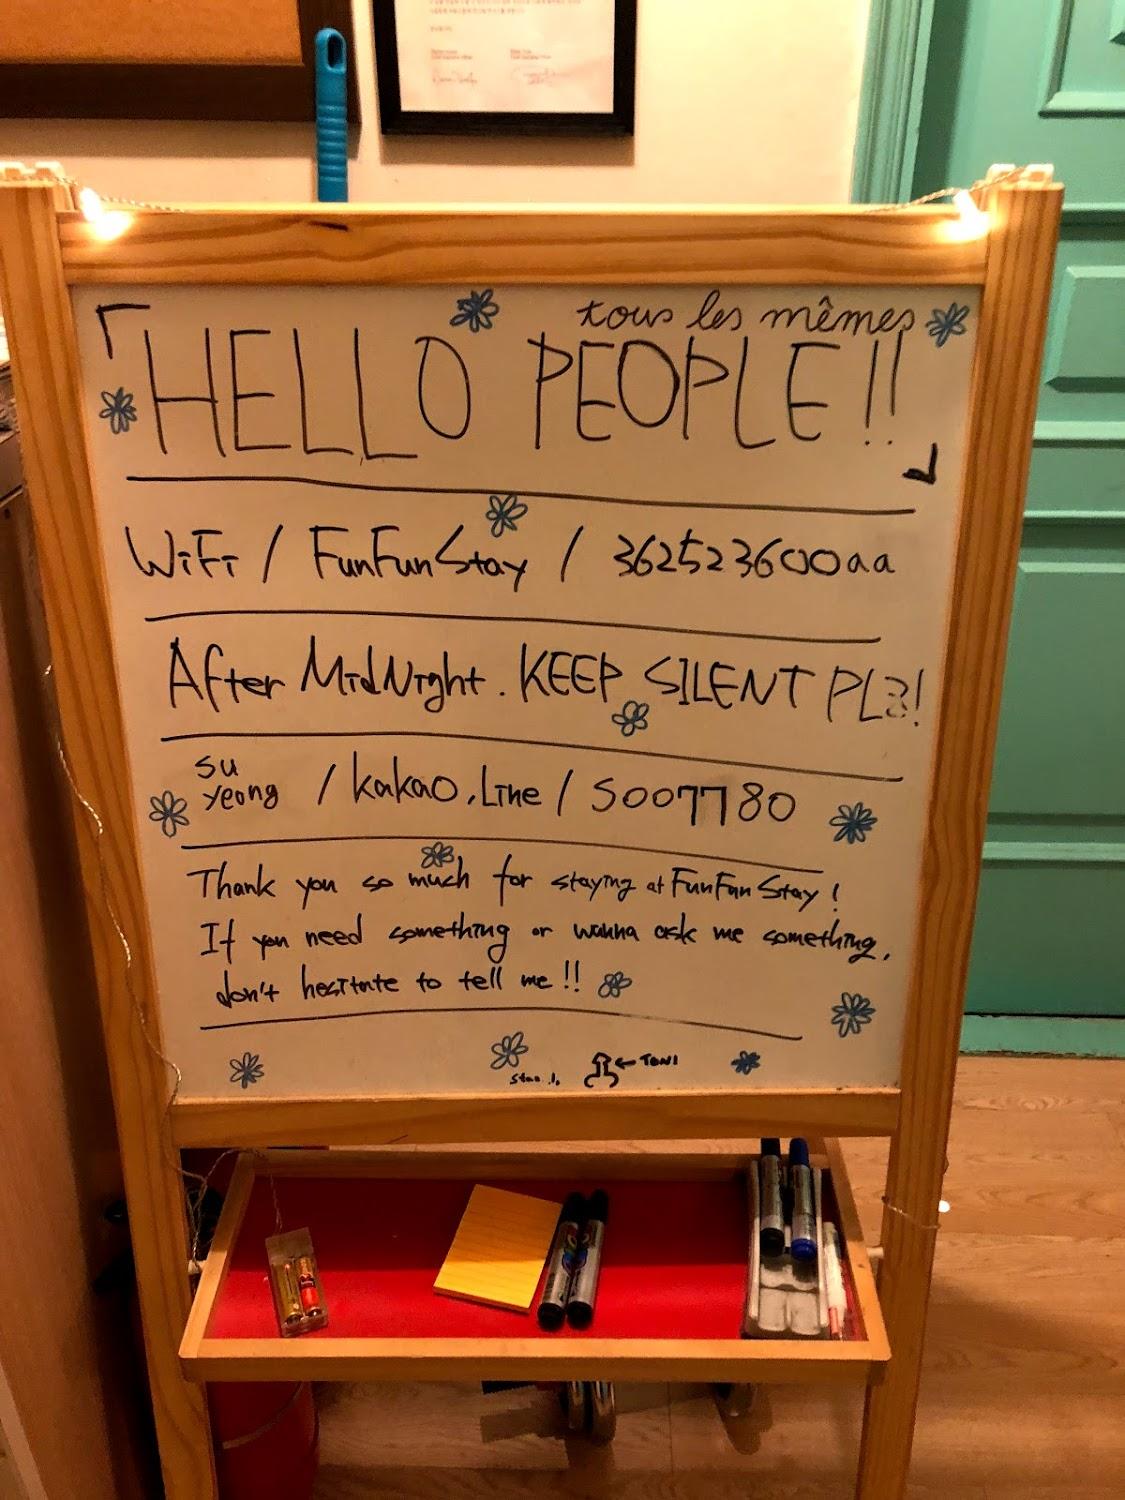 tous les mêmes
「HELLO PEOPLE!!」
WiFi / FunFunStay / 362523600aa
After MidNight. KEEP SILENT PLZ!
su
yeong / kakao, Line / S007780
Thank you so much for staying at FunFunStay!
If you need something or wanna ask me something,
don't hesitate to tell me!!
← TONI